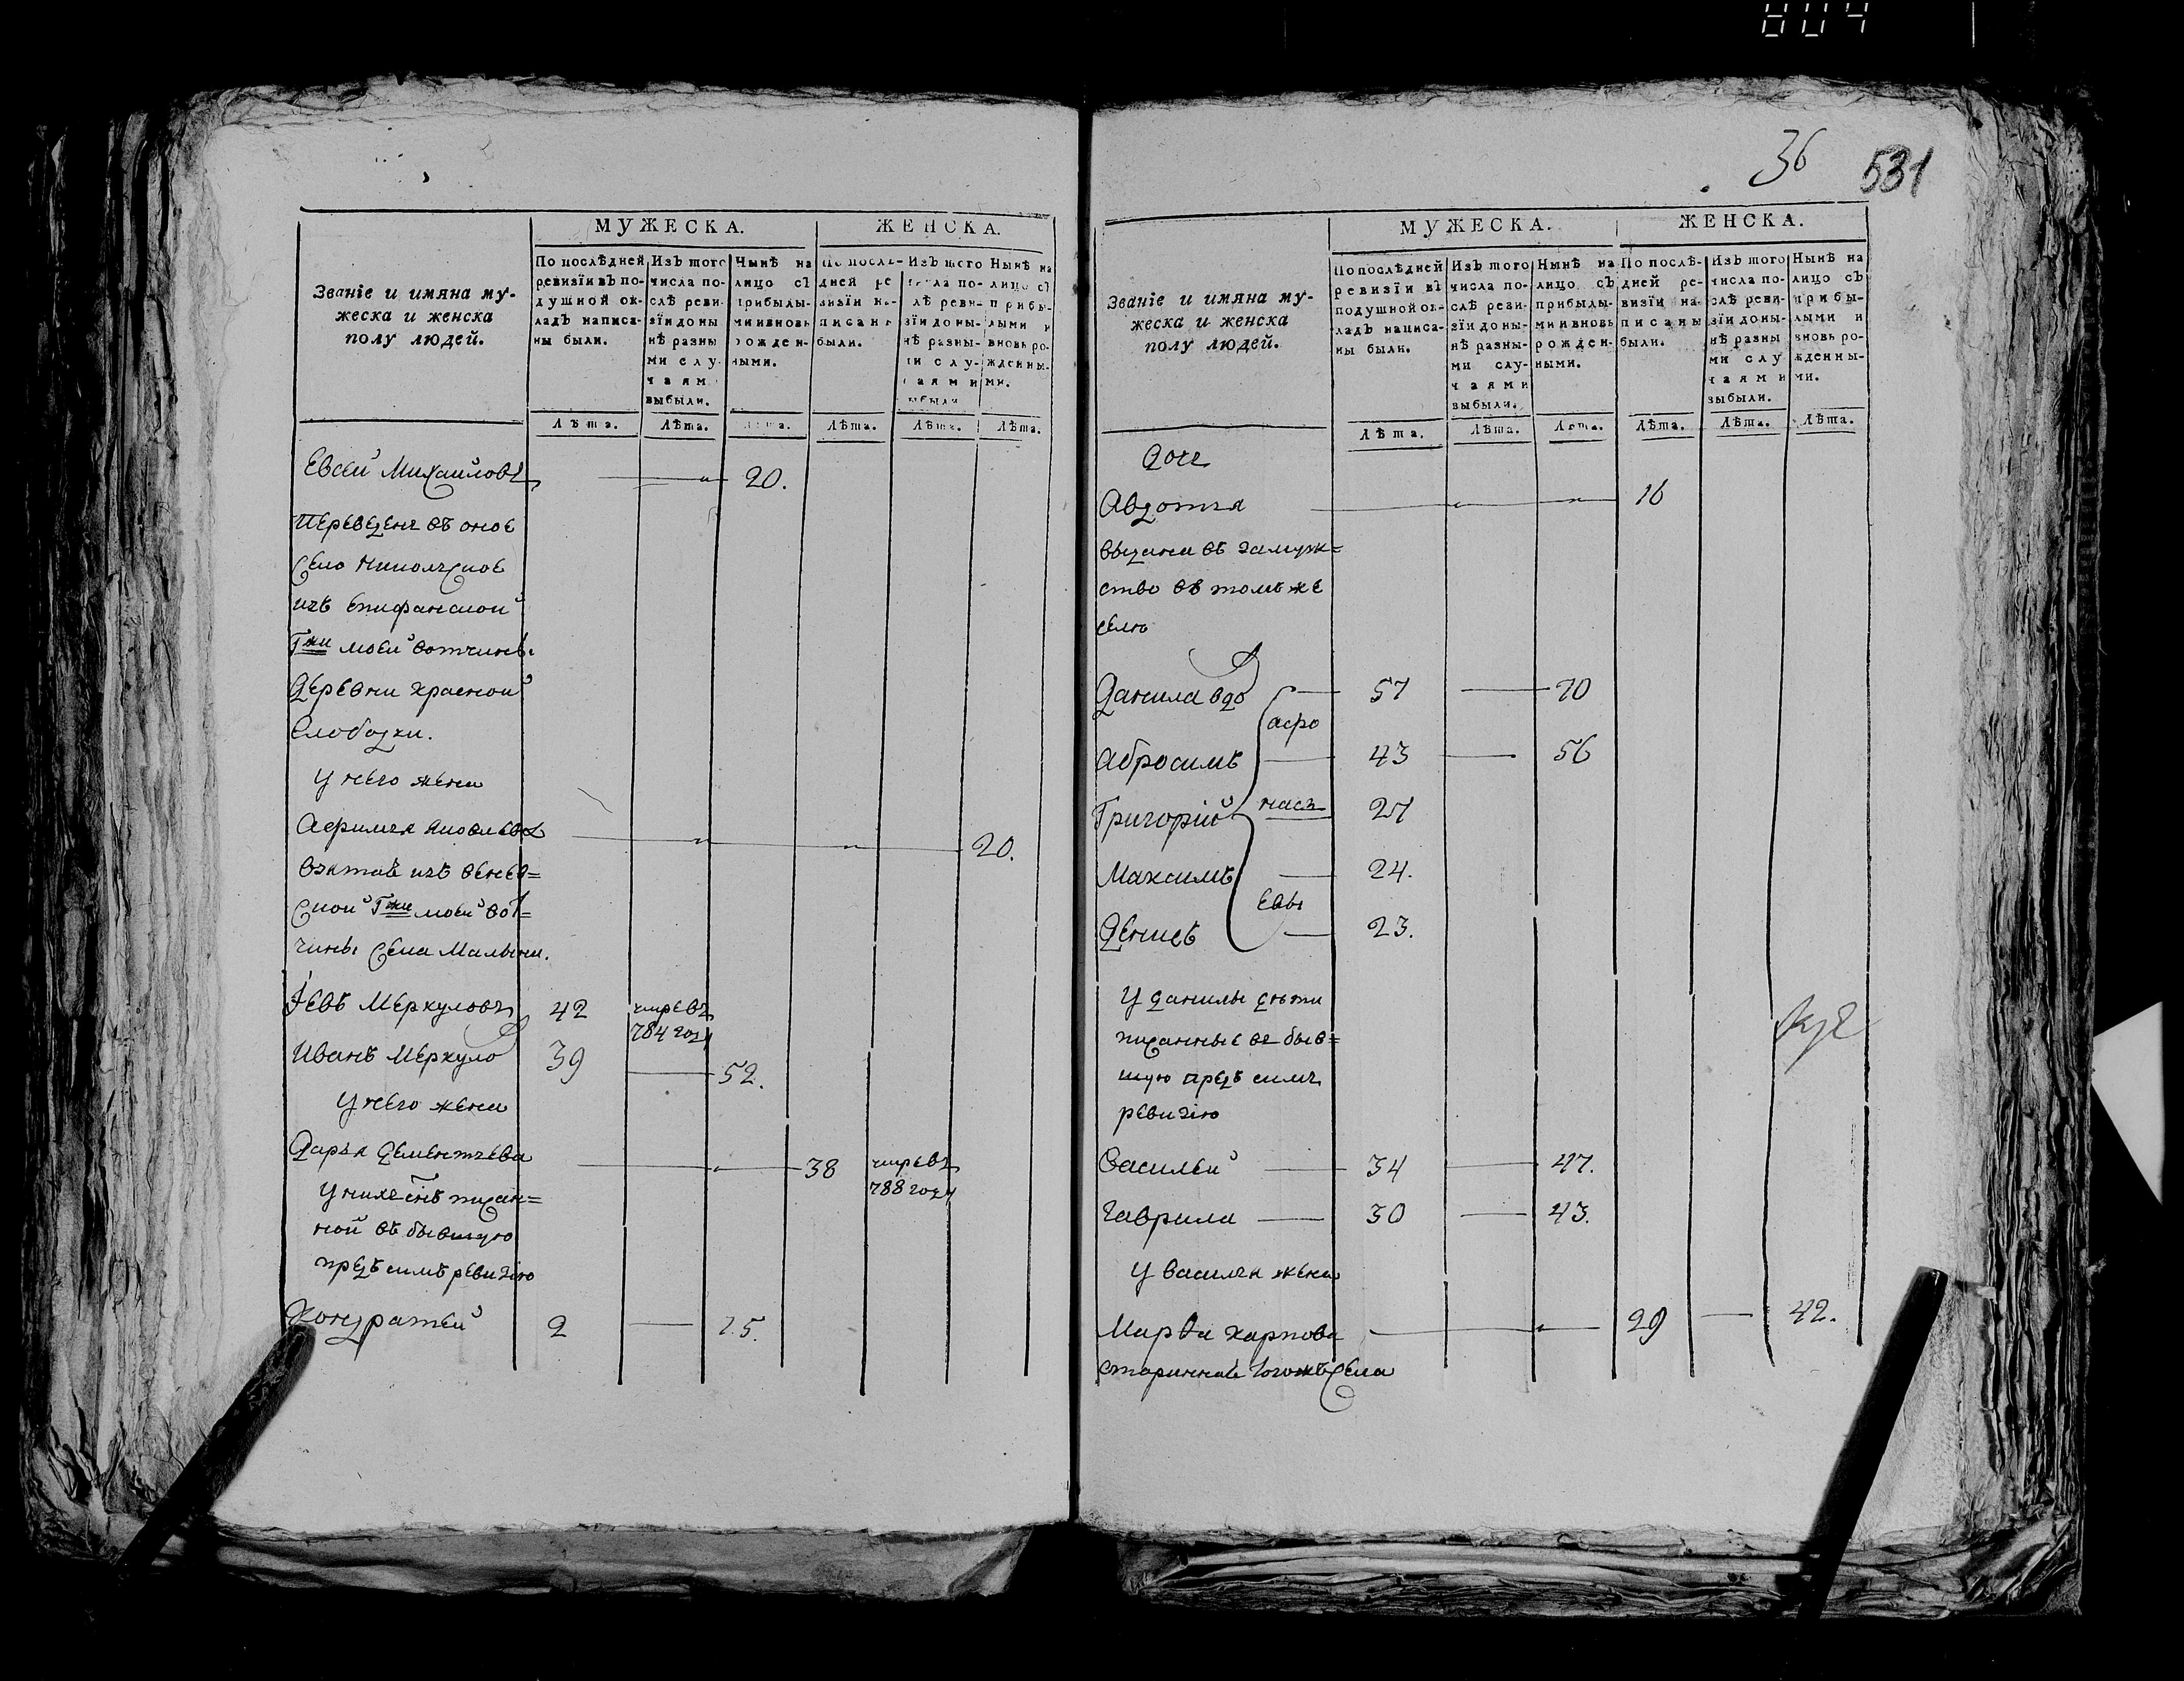 804
МУЖЕСКА.
ЖЕНСКА.
Званіе и имяна му-
жеска и женска
полу людей.
По послѣдней
ревизїи въ по-
душной ок-
ладъ написа-
ны были.
Изъ того
числа по-
слѣ реви-
зїи до ны
нѣ разны
ми слу-
чаям
выбыли.
Нынѣ на
лицо съ
прибылы-
ми и вновь
рожден-
ными.
По послѣ-
дней ре
визїи на-
писаны
были.
Изъ того
числа по-
слѣ реви-
зїи до ны-
нѣ разны-
ми слу-
чаями
выбыли
Нынѣ на
лицо съ
прибы-
лыми и
вновь ро-
жденны-
ми.
Лѣта. Лѣта. Лѣта. Лѣта. Лѣта. Лѣта.
Евсей Михайловъ 20.
Переведенъ въ оное
село Никольское
изъ Епифанской
Гжи моей вотчинѣ
деревни Красной
Слободки.
у него жена
Афимья Яковлева 20.
взятая изъ венев=
ской Гжи моей вот=
чины села Малыни.
Іевъ Меркуловъ 42 умре въ
784 году
Иванъ Меркуло 39 52.
у него жена
Дарья Дементьева 38 умре въ
788 году
у нихъ снъ писан=
ной въ бывшую
предъ симъ ревизію
Кондратей 2 15.
36
531
МУЖЕСКА.
ЖЕНСКА.
Званіе и имяна му-
жеска и женска
полу людей.
По послѣдней
ревизїи въ
подушной ок-
ладъ написа-
ны были.
Изъ того
числа по-
слѣ реви-
зїи до ны-
нѣ разны-
ми слу-
чаями
выбыли.
Нынѣ на
лицо съ
прибылы-
ми и вновь
рожден-
ными.
По послѣ-
дней ре-
визїи на-
писаны
были.
Изъ того
числа по-
слѣ реви-
зїи до ны-
нѣ разны
ми слу
чаями
выбыли.
Нынѣ на
лицо съ
прибы-
лыми и
вновь ро-
жденны-
ми.
Лѣта. Лѣта. Лѣта. Лѣта. Лѣта. Лѣта.
дочь
Авдотья 16
выдана въ замуж=
ство въ томъ же
селѣ
Данила вдо 57 70
афо
Абросимъ 43 56
Григорій насъ 27
Максимъ 24.
евы
Денисъ 23.
у Данилы дѣти
писанные въ быв=
шую предъ симъ
ревизію
Василей 34 47.
Гаврила 30 43.
у Василья жена
Марѳа Карпова 29 42.
старинная тогожъ села